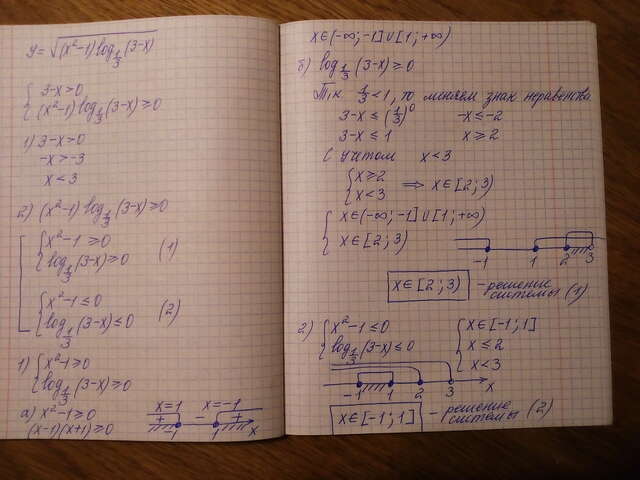 y=√((x²-1)log_{1/3}(3-x))
{ 3-x>0
(x²-1)log_{1/3}(3-x)≥0
1) 3-x>0
-x>-3
x<3
2) (x²-1)log_{1/3}(3-x)≥0
[ { x²-1≥0
log_{1/3}(3-x)≥0 (1)
{ x²-1≤0
log_{1/3}(3-x)≤0 (2)
1) { x²-1≥0
log_{1/3}(3-x)≥0
а) x²-1≥0
(x-1)(x+1)≥0
x=1 x=-1
+ - +
-1 1 x
x∈(-∞;-1]∪[1;+∞)
б) log_{1/3}(3-x)≥0
Т.к. 1/3<1, то меняем знак неравенства
3-x≤(1/3)⁰ -x≤-2
3-x≤1 x≥2
С учетом x<3
{ x≥2
x<3 ⟹ x∈[2;3)
{ x∈(-∞;-1]∪[1;+∞)
x∈[2;3)
-1 1 2 3
x∈[2;3) - решение
системы (1)
2) { x²-1≤0
log_{1/3}(3-x)≤0
{ x∈[-1;1]
x≤2
x<3
-1 1 2 3 x
x∈[-1;1] - решение
системы (2)